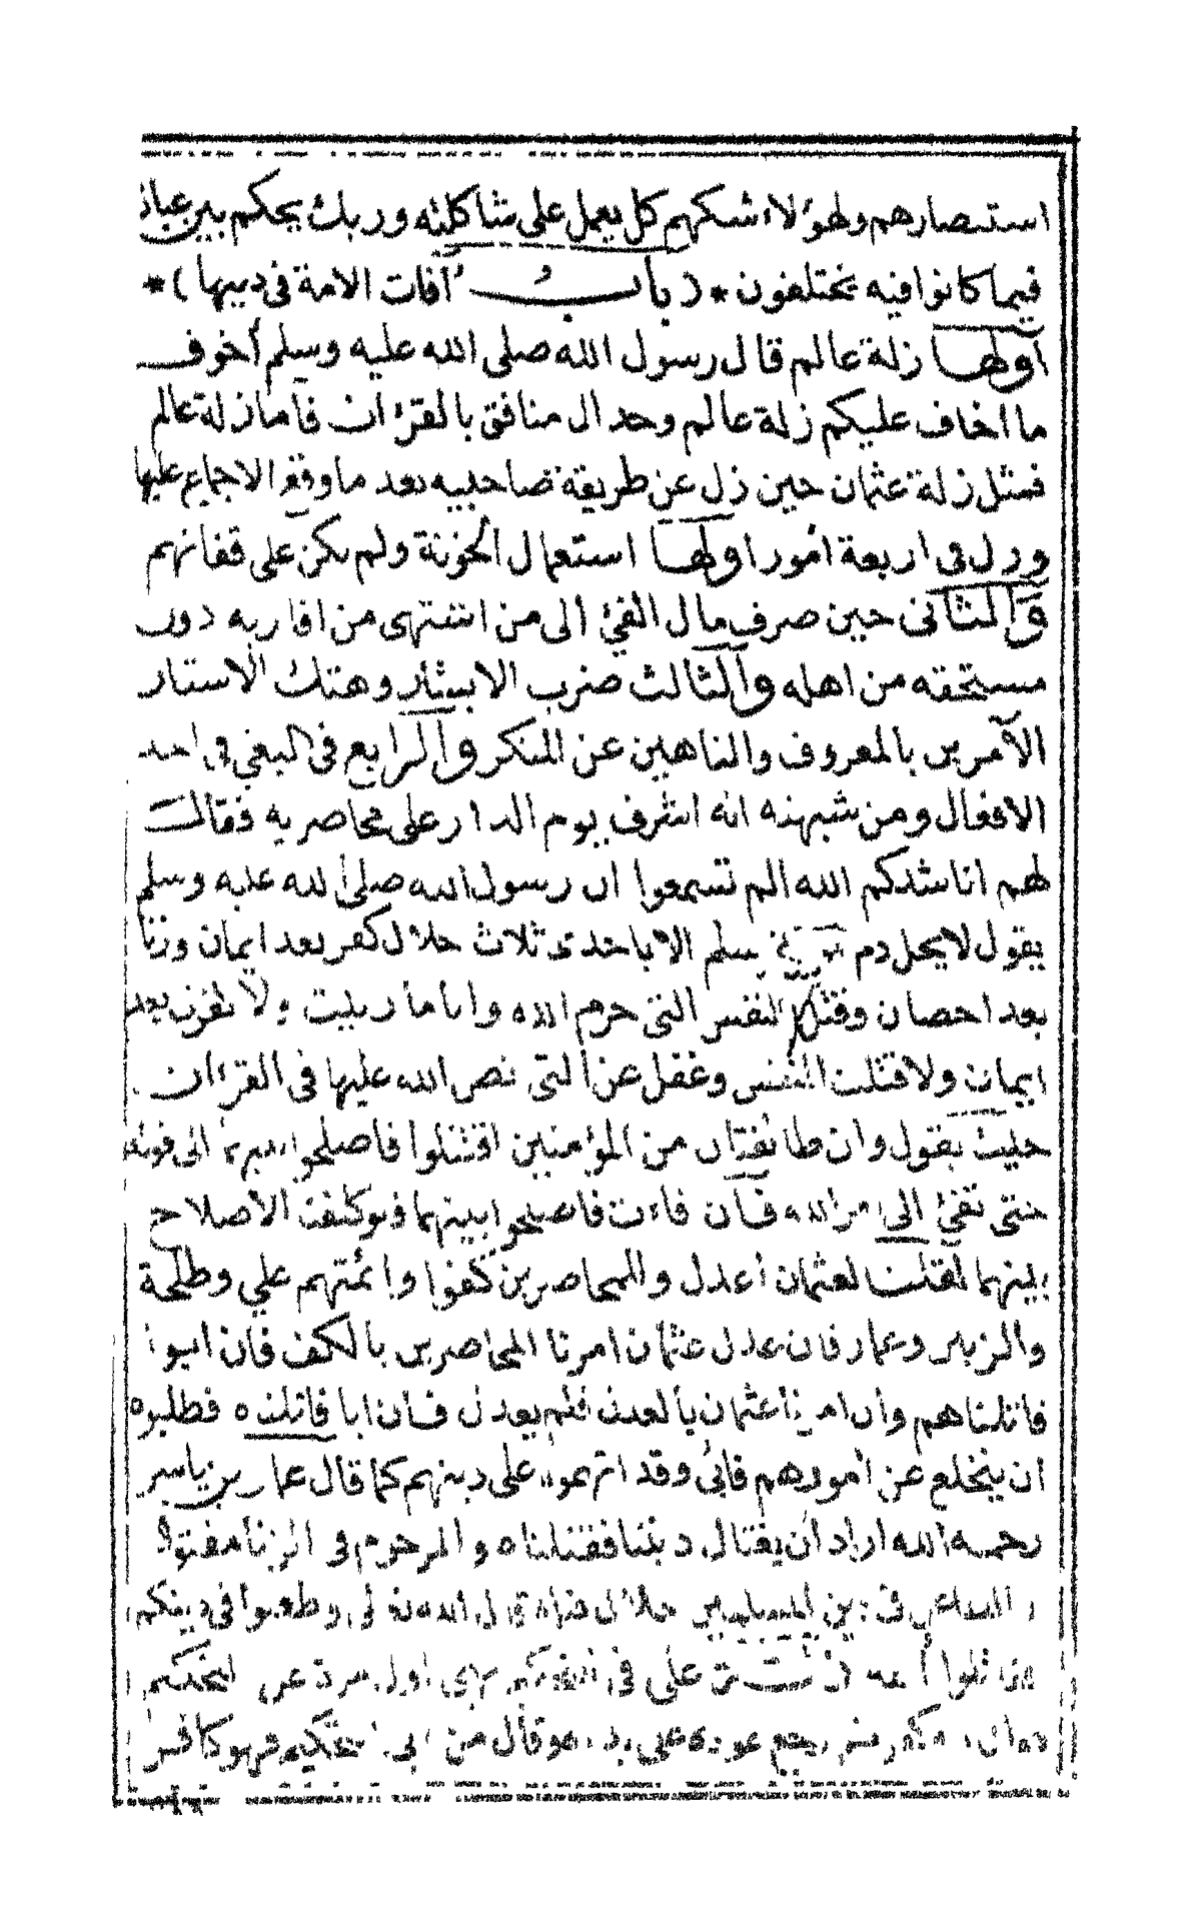 استبصارهم ولهؤلاء شكهم كل يعمل على شاكلته وربك يحكم بين عباد
فيما كانوا فيه يختلفون * ( باب آفات الامة في دينها ) *
أولها زلة عالم قال رسول الله صلى الله عليه وسلم أخوف
ما اخاف عليكم زلة عالم وجدال منافق بالقرءان فأما زلة عالم
فمثل زلة عثمان حين زل عن طريقة صاحبيه بعد ما وقع الاجماع عليها
وزل في اربعة أمور اولها استعمال الخونة ولم يكن على ققانهم
والثاني حين صرف مال الفيء الى من انتهى من اقاربه دون
مستحقه من اهله والثالث ضرب الابشار وهتك الاستار
الآمرين بالمعروف والناهين عن المنكر والرابع في البغي في احد
الافعال ومن شبهته انه اشرف يوم الدار على محاصريه فقال
لهم اناشدكم الله الم تسمعوا ان رسول الله صلى الله عليه وسلم
يقول لا يحل دم مسلم الا باحدى ثلاث خلال كفر بعد ايمان وزنا
بعد احصان وقتل النفس التي حرم الله وانا ما زنيت ولا كفرت بعد
ايمان ولا قتلت النفس وغفل عن التي نص الله عليها في القرءان
حيث يقول وان طائفتان من المؤمنين اقتتلوا فاصلحوا بينهما الى قوله
حتى تفيء الى امر الله فان فاءت فاصلحوا بينهما فلو كلفت الاصلاح
بينهما لقلنا لعثمان أعدل وللمحاصرين كفوا وائمتهم علي وطلحة
والزبير وعمار فان عدل عثمان امرنا المحاصرين بالكف فان ابوا
قاتلناهم وان امرنا عثمان بالعدل فلم يعدل فان ابا قاتلناه فطلبوه
ان ينخلع عن أمورهم فابى وقد اتهموه على دينهم كما قال عمار بن ياسر
رحمه الله اراد أن يغتال ديننا فقتلناه والمرحوم في
المسلمين حلال الله وطعنوا في دينكم
علي في اول من
وقال من فهو كافر